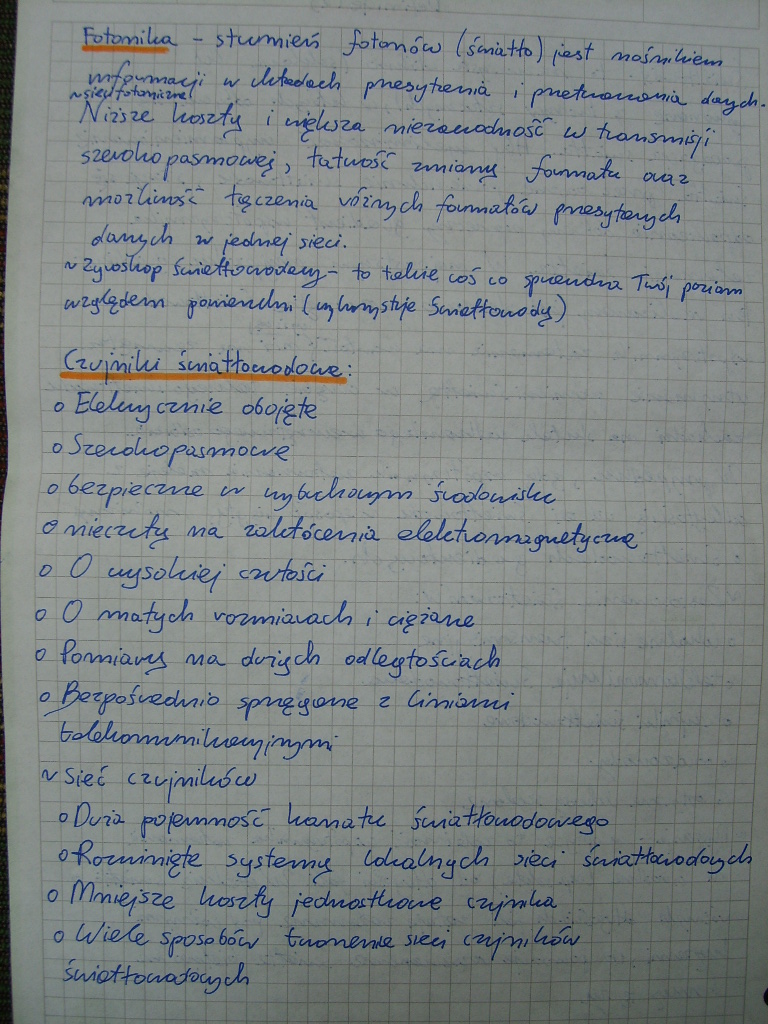 Fotonika - strumień fotonów (światło) jest nośnikiem
informacji w układach przesyłania i przetwarzania danych.
~sieci fotoniczne
Niższe koszty i większa niezawodność w transmisji
szerokopasmowej, łatwość zmiany formatu oraz
możliwość łączenia różnych formatów przesyłanych
danych w jednej sieci.
~ Żyroskop światłowodowy - to takie coś co sprawdza Twój poziom
względem powierzchni (wykorzystuje światłowody)
Czujniki światłowodowe:
o Elektrycznie obojęte
o Szerokopasmowe
o bezpieczne w wybuchowym środowisku
o nieczuły na zakłócenia elektromagnetyczne
o O wysokiej czułości
o O małych rozmiarach i ciężarze
o Pomiary na dużych odległościach
o Bezpośrednio sprzęgane z liniami
telekomunikacyjnymi
~ Sieć czujników
o Duża pojemność kanału światłowodowego
o Rozwinięte systemy lokalnych sieci światłowodowych
o Mniejsze koszty jednostkowe czujnika
o Wiele sposobów tworzenie sieci czujników
światłowodowych